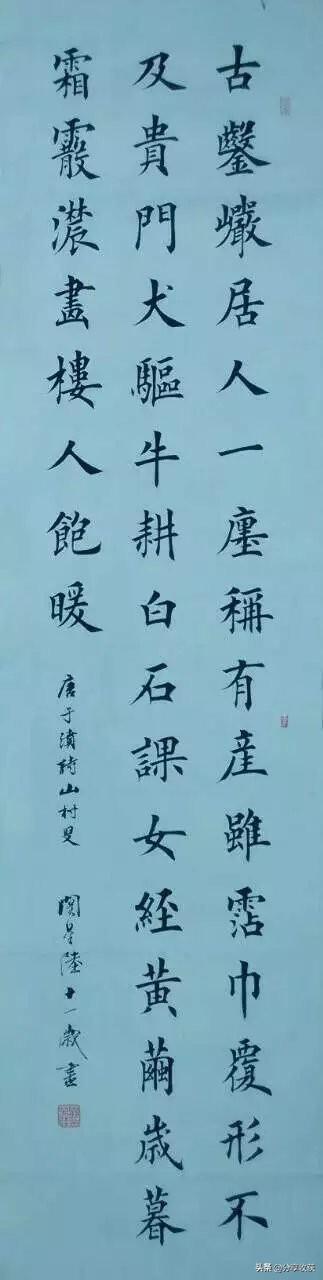 古鑿巖居人一廛稱有産雖霑巾覆形不
及貴門犬驅牛耕白石課女經黄繭歲暮
霜霰濃畫樓人飽暖
唐于濆詩山村叟
陸十一歲書
头条 @分享收获